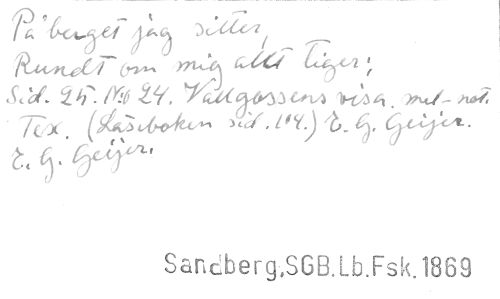 På berget jag sitter,
Rundt om mig allt tiger;
Sid. 25. No 24. Vallgossens visa. mel-not.
Tex. (Läseboken sid. 104.) E. G. Geijer.
E. G. Geijer.
Sandberg,SGB.Lb.Fsk.1869